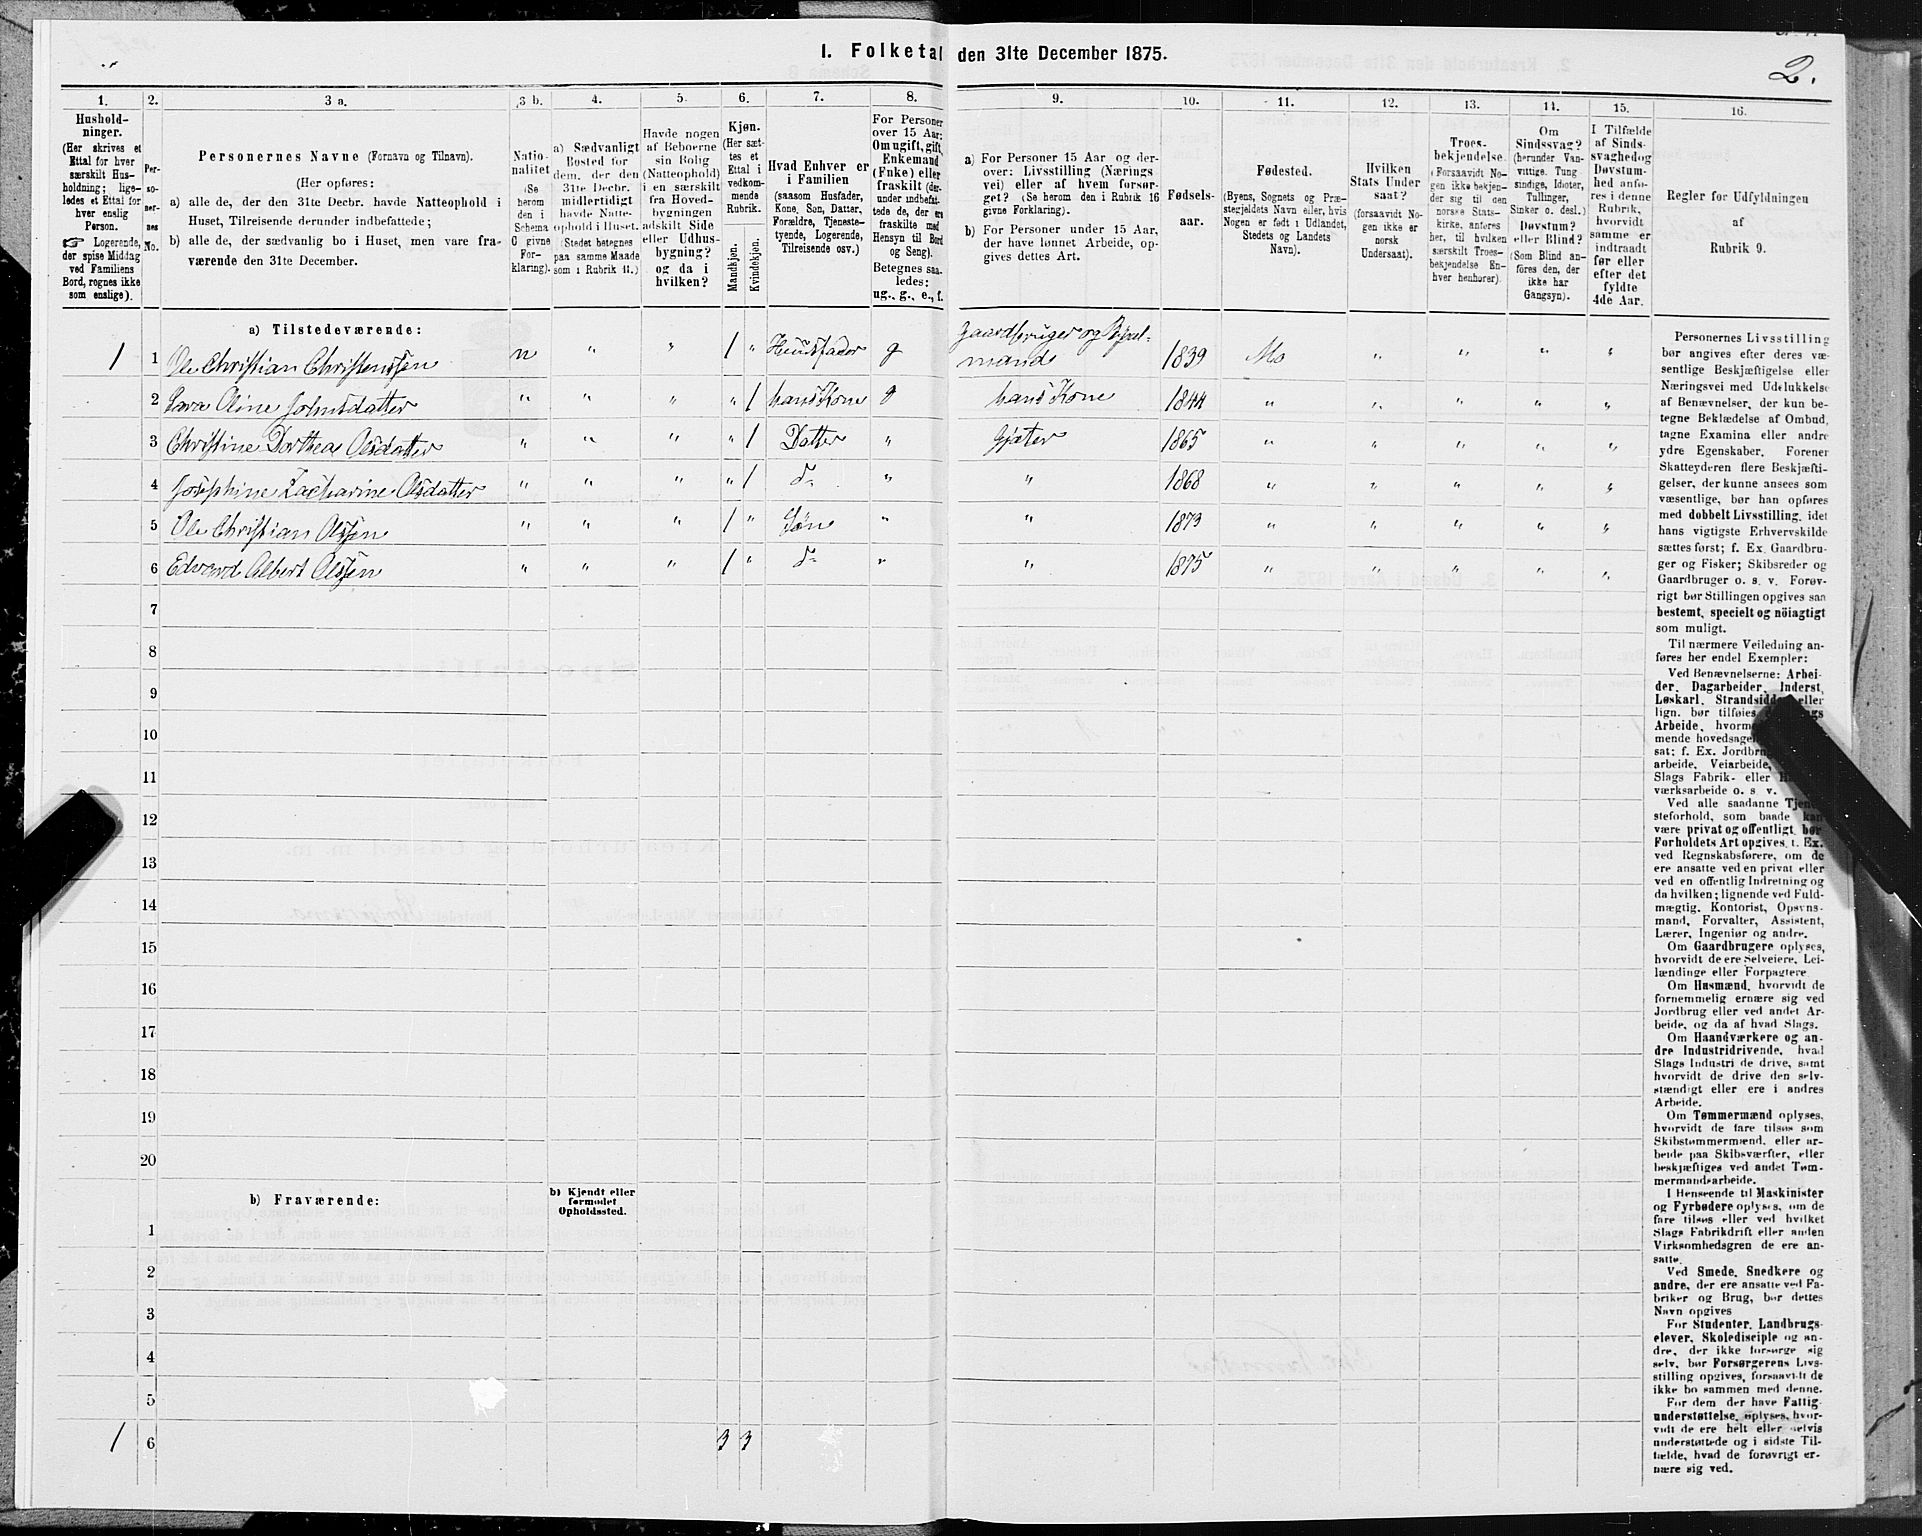 1. Folketal den 31te December 1875.
2.
1.
2.
3 a.
3 b.
4.
5.
6.
7.
8.
9.
10.
11.
12.
13.
14.
15.
16.
Hushold-
ninger.
(Her skrives et
Ettal for hver
særskilt Hus-
holdning; lige-
ledes et Ettal for
hver enslig
Person.
☞ Logerende,
der spise Middag
ved Familiens
Bord, regnes ikke
som enslige).
Per-
so-
ner-
nes
No.
Personernes Navne (Fornavn og Tilnavn).
(Her opføres:
a) alle de, der den 31te Decbr. havde Natteophold i
Huset, Tilreisende derunder indbefattede;
b) alle de, der sædvanlig bo i Huset, men vare fra-
værende den 31te December.
Natio-
nalitet
(Se
herom
den i
Schema
C givne
For-
klaring).
a) Sædvanligt
Bosted for
dem, der den
31te Decbr.
midlertidigt
havde Natte-
ophold i Huset.
(Stedet betegnes
paa samme Maade
som i Rubrik 11.)
Havde nogen
af Beboerne
sin Bolig
(Natteophold)
i en særskilt
fra Hoved-
bygningen
adskilt Side
eller Udhus-
bygning?
og da i
hvilken?
Kjøn.
(Her sæt-
tes et
Ettal i
vedkom-
mende
Rubrik.
Mandkjøn.
Kvindekjøn.
Hvad Enhver er
i Familien
(saasom Husfader,
Kone, Søn, Datter,
Forældre, Tjeneste-
tyende, Logerende,
Tilreisende osv.)
For Personer
over 15 Aar:
Om ugift, gift,
Enkemand
(Enke) eller
fraskilt (der-
under indbefat-
tede de, der ere
fraskilte med
Hensyn til Bord
og Seng).
Betegnes saa-
ledes:
ug., g., e., f.
a) For Personer 15 Aar og der-
over: Livsstilling (Nærings
vei) eller af hvem forsør-
get? (Se herom den i Rubrik 16
givne Forklaring).
b) For Personer under 15 Aar,
der have lønnet Arbeide, op-
gives dettes Art.
Fødsels-
aar.
Fødested.
(Byens, Sognets og Præ-
stegjeldets Navn eller, hvis
Nogen er født i Udlandet,
Stedets og Landets
Navn).
Hvilken
Stats Under
saat?
(forsaavidt No-
gen ikke er
norsk
Undersaat).
Troes-
bekjendelse.
(Forsaavidt No-
gen ikke bekjen-
der sig til den
norske Stats-
kirke, anføres
her, til hvilken
særskilt Troes-
bekjendelse En-
hver henhører).
Om
Sindssvag?
(herunder Van-
vittige, Tung
sindige, Idioter,
Tullinger,
Sinker o. desl.)
Døvstum?
eller Blind?
(Som Blind an-
føres den, der
ikke har
Gangsyn).
I Tilfælde
af Sinds-
svaghed og
Døvstum-
hed anfø-
res i denne
Rubrik,
hvorvidt
samme er
indtraadt
før eller
efter det
fyldte
4de Aar.
Regler for Udfyldningen
af
Rubrik 9.
a) Tilstedeværende:
1 1 Ole Christian Christenssen n " " 1 " Huusfader g Gaardbruger og Bøxel-
mand 1839 Mo " " " "
2 Sara Oline Johnsdatter " " " " 1 hans Kone g hans Kone 1844 " " " " "
3 Christine Dorthea Olsdatter " " " " 1 Datter " Gjæter 1865 " " " " "
4 Josephine Zacharine Olsdatter " " " " 1 d~ " " 1868 " " " " "
5 Ole Christian Olssen " " " 1 " Søn " " 1873 " " " " "
6 Edvard Albert Olssen " " " 1 " d~ " " 1875 " " " " "
7
8
9
10
11
12
13
14
15
16
17
18
19
20
b) Fraværende:
b) Kjendt eller
formodet
Opholdssted.
1
2
3
4
5
1 6 3 3
Personernes Livsstilling
bør angives efter deres væ-
sentlige Beskjæftigelse eller
Næringsvei med Udelukkelse
af Benævnelser, der kun be-
tegne Beklædelse af Ombud,
tagne Examina eller andre
ydre Egenskaber. Forener
Skatteyderen flere Beskjæfti-
gelser, der kunne ansees som
væsentlige, bør han opføres
med dobbelt Livsstilling, idet
hans vigtigste Erhvervskilde
sættes først; f. Ex. Gaardbru-
ger og Fisker; Skibsreder og
Gaardbruger o. s. v. Forøv-
rigt bør Stillingen opgives saa
bestemt, specielt og nöiagtigt
som muligt.
Til nærmere Veiledning an-
føres her endel Exempler:
Ved Benævnelserne: Arbei-
der, Dagarbeider, Inderst,
Løskarl, Strandsidd eller
lign. bør tilføies
Arbeide, hvorm
mende hovedsage
sat; f. Ex. Jordbr
arbeide, Veiarbeide,
Slags Fabrik- eller
værksarbeide o. s v.
Ved alle saadanne Tjene
steforhold, som baade kan
være privat og offentligt, bør
Forholdets Art opgives, t. Ex.
ved Regnskabsførere, om de
ere ansatte ved en privat eller
ved en offentlig Indretning og
da hvilken; lignende ved Fuld-
mægtig, Kontorist, Opsyns-
mand, Forvalter, Assistent,
Lærer, Ingeniør og andre.
Om Gaardbrugere oplyses,
hvorvidt de ere Selveiere, Lei-
lændinge eller Forpagtere
Om Husmænd, hvorvidt de
fornemmelig ernære sig ved
Jordbrug eller ved andet Ar-
beide, og da af hvad Slags.
Om Haandværkere og an-
dre Industridrivende, hvad
Slags Industri de drive, samt
hvorvidt de drive den selv-
stændigt eller ere i andres
Arbeide.
Om Tømmermænd oplyses,
hvorvidt de fare tilsøs som
Skibstømmermænd, eller ar-
beide paa Skibsværfter, eller
beskjæftiges ved andet Tøm-
mermandsarbeide.
I Henseende til Maskinister
og Fyrbødere oplyses, om de
fare tilsøs eller ved hvilket
Slags Fabrikdrift eller anden
Virksomhedsgren de ere an-
satte.
Ved Smede, Snedkere og
andre, der ere ansatte ved Fa-
briker og Brug, bør dettes
Navn opgives
For Studenter, Landbrugs-
elever, Skoledisciple og an-
dre, der ikke forsørge sig
selv, bør Forsørgerens Livs-
stilling opgives, forsaavidt de
ikke bo sammen med denne.
For dem der have Fattig-
understøttelse, oplyses, hvor-
vidt de ere helt eller delvis
understøttede og i sidste Til-
fælde, hvad de forøvrigt er-
nære sig ved.